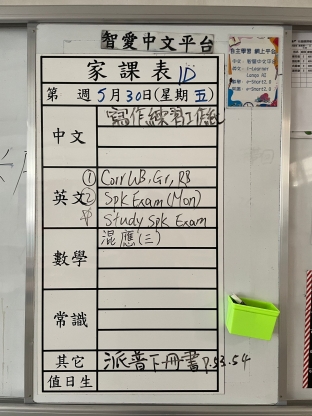 智愛中文平台
家課表 1D
第 週 5月30日(星期五)
中文 寫作練習工作紙
英文 ① Corr WB, Gr, RB
② Spk Exam (Mon)
中 Study Spk Exam
數學 混應(三)
常識
其它 派普下冊書 P.53.54
值日生
自主學習 網上平台
中文：智愛中文平台